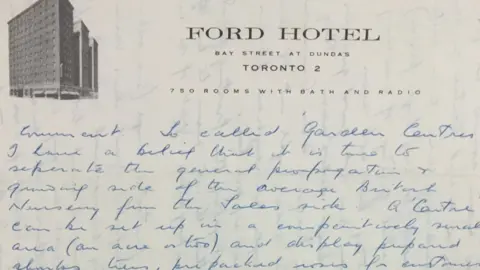 FORD HOTEL
BAY STREET AT DUNDAS
TORONTO 2
750 ROOMS WITH BATH AND RADIO
Comment So called 'Garden Centres'
I have a belief that it is time to
seperate the general propagation &
growing side of the average British
Nursery from the Sales side. A 'Centre'
can be set up in a comparitively small
area (an acre or too) and display prepared
shrubs trees, prepacked roses for customer